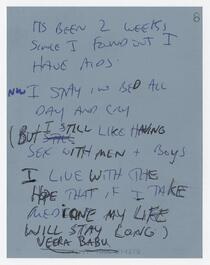 8
ITS BEEN 2 WEEKS
SINCE I FOUND OUT I
HAVE AIDS.
NOW I STAY IN BED ALL
DAY AND CRY
(BUT I STILL LIKE HAVING
SEX WITH MEN + BOYS
I LIVE WITH THE
HOPE THAT IF I TAKE
MEDICINE MY LIFE
WILL STAY LONG)
VEERA BABU